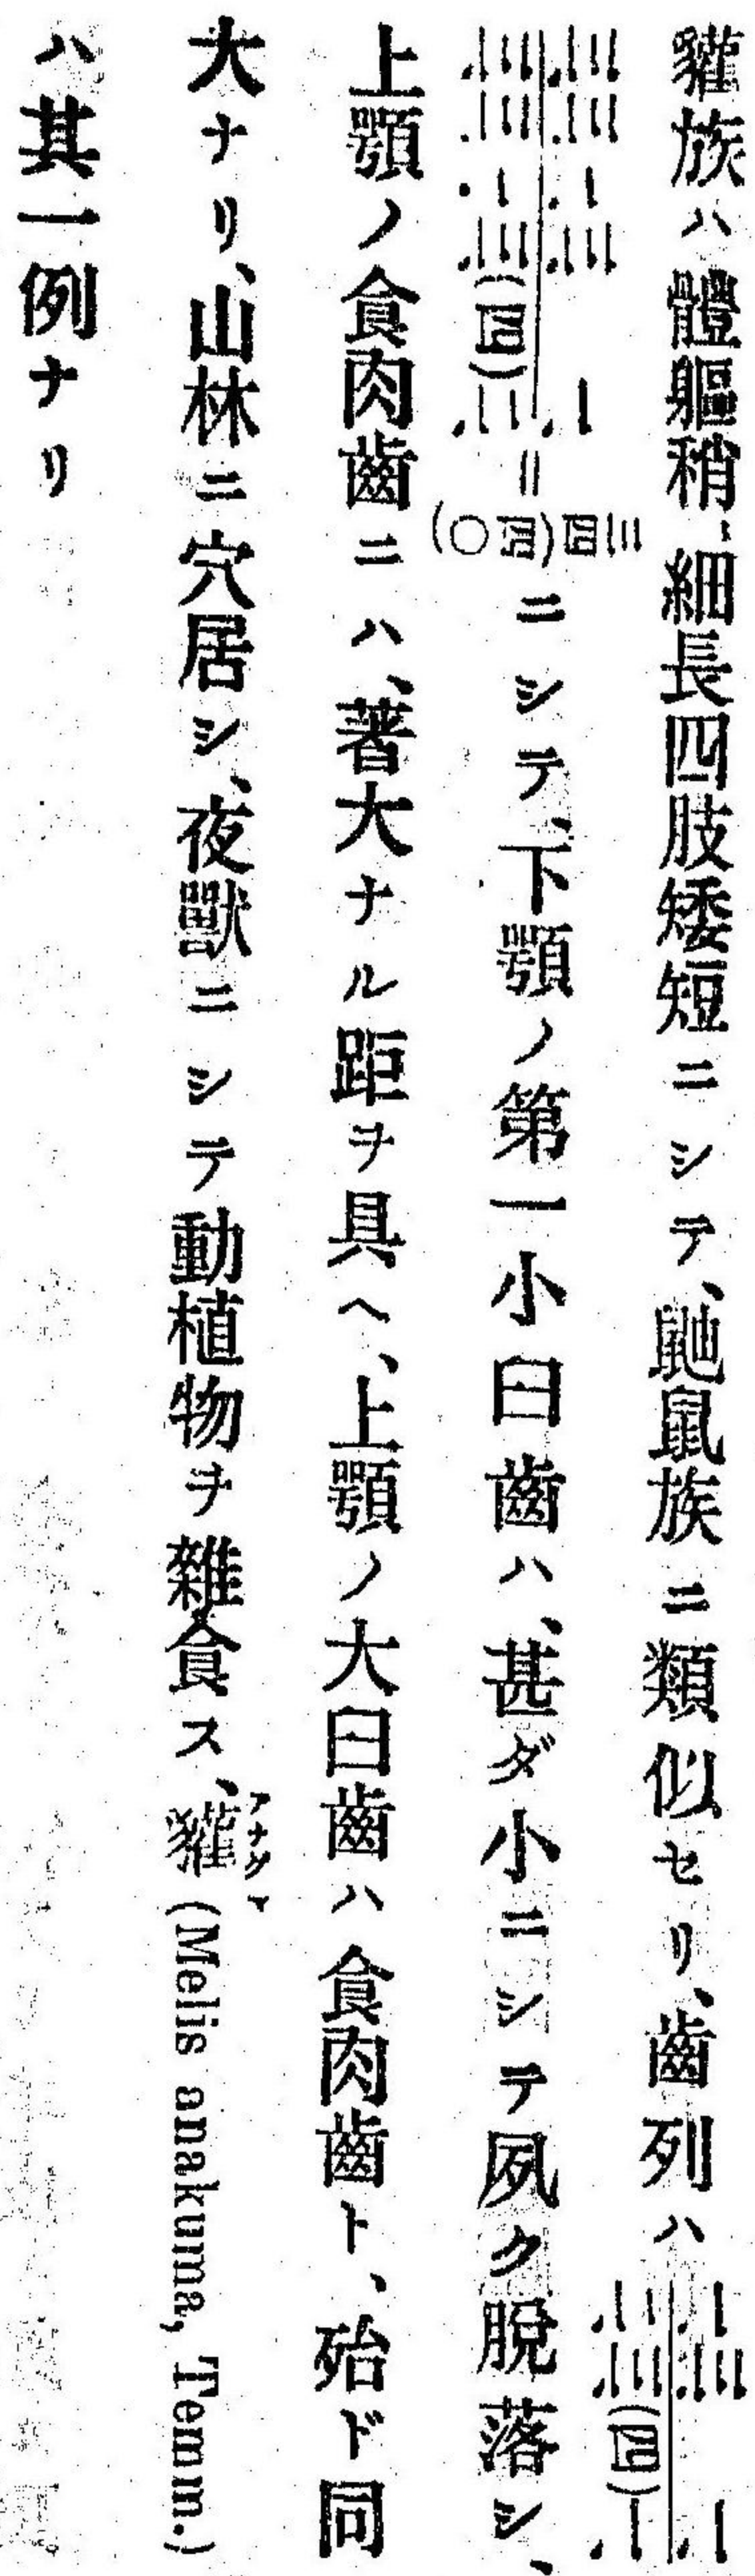 貛族ハ體軀稍、細長四肢矮短ニシテ、鼬鼠族ニ類似セリ、齒列ハ
ニシテ、下顎ノ第一小臼齒ハ、甚ダ小ニシテ夙ク脱落シ、
上顎ノ食肉齒ニハ、著大ナル距ヲ具ヘ、上顎ノ大臼齒ハ食肉齒ト、殆ド同
大ナリ、山林ニ穴居シ、夜獸ニシテ動植物ヲ雜食ス、貛アナグマ(Melis anakuma, Temm.)
ハ其一例ナリ